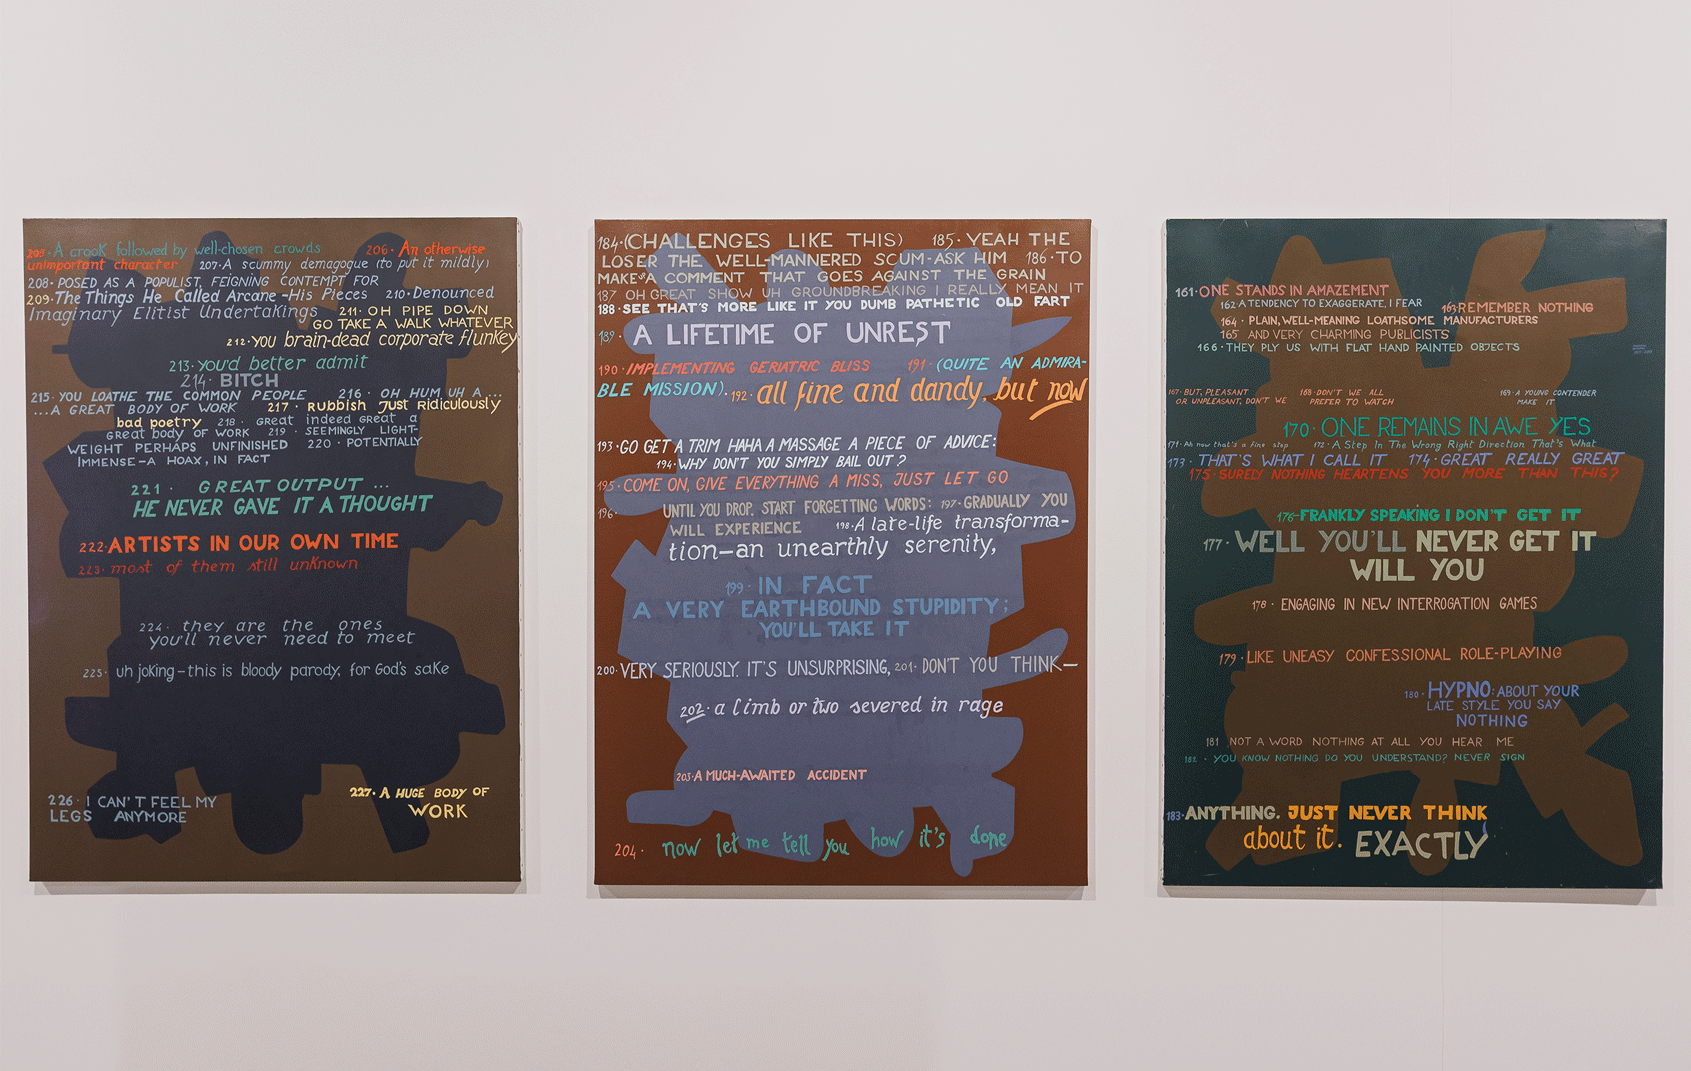 205·A crook followed by well-chosen crowds 206·An otherwise
unimportant character 207·A scummy demagogue (to put it mildly)
208·POSED AS A POPULIST, FEIGNING CONTEMPT FOR
209·The Things He Called Arcane-His Pieces 210·Denounced
Imaginary Elitist Undertakings 211·OH PIPE DOWN
GO TAKE A WALK WHATEVER
212·YOU brain-dead corporate flunkey
213·you'd better admit
214·BITCH
215·YOU LOATHE THE COMMON PEOPLE 216·OH HUM UH A...
...A GREAT BODY OF WORK 217·Rubbish Just Ridiculously
bad poetry 218·Great indeed great a
great body of WORK 219·SEEMINGLY LIGHT-
WEIGHT PERHAPS UNFINISHED 220·POTENTIALLY
IMMENSE-A HOAX, IN FACT
221·GREAT OUTPUT...
HE NEVER GAVE IT A THOUGHT
222·ARTISTS IN OUR OWN TIME
223·most of them still unknown
224·they are the ones
you'll never need to meet
225·uh joking-this is bloody parody, for God's sake
226·I CAN'T FEEL MY
LEGS ANYMORE
227·A HUGE BODY OF
WORK
184·(CHALLENGES LIKE THIS) 185·YEAH THE
LOSER THE WELL-MANNERED SCUM-ASK HIM 186·TO
MAKE A COMMENT THAT GOES AGAINST THE GRAIN
187 OH GREAT SHOW UH GROUNDBREAKING I REALLY MEAN IT
188·SEE THAT'S MORE LIKE IT YOU DUMB PATHETIC OLD FART
189·A LIFETIME OF UNREST
190·IMPLEMENTING GERIATRIC BLISS 191·(QUITE AN ADMIRA-
BLE MISSION). 192·all fine and dandy, but now
193·GO GET A TRIM HAHA A MASSAGE A PIECE OF ADVICE:
194·WHY DON'T YOU SIMPLY BAIL OUT?
195·COME ON, GIVE EVERYTHING A MISS, JUST LET GO
196· UNTIL YOU DROP. START FORGETTING WORDS: 197·GRADUALLY YOU
WILL EXPERIENCE 198·A late-life transforma-
tion-an unearthly serenity,
199·IN FACT
A VERY EARTHBOUND STUPIDITY;
YOU'LL TAKE IT
200·VERY SERIOUSLY. IT'S UNSURPRISING, 201·DON'T YOU THINK—
202·a limb or two severed in rage
203·A MUCH-AWAITED ACCIDENT
204·now let me tell you how it's done
161·ONE STANDS IN AMAZEMENT
162·A TENDENCY TO EXAGGERATE, I FEAR 163·REMEMBER NOTHING
164·PLAIN, WELL-MEANING LOATHSOME MANUFACTURERS
165 AND VERY CHARMING PUBLICISTS
166·THEY PLY US WITH FLAT HAND PAINTED OBJECTS
167·BUT, PLEASANT 168·DON'T WE ALL 169·A YOUNG CONTENDER
OR UNPLEASANT, DON'T WE PREFER TO WATCH MAKE IT
170·ONE REMAINS IN AWE YES
171·Ah now that's a fine step 172·A Step In The Wrong Right Direction That's What
173·THAT'S WHAT I CALL IT 174·GREAT REALLY GREAT
175·SURELY NOTHING HEARTENS YOU MORE THAN THIS?
176·FRANKLY SPEAKING I DON'T GET IT
177·WELL YOU'LL NEVER GET IT
WILL YOU
178·ENGAGING IN NEW INTERROGATION GAMES
179·LIKE UNEASY CONFESSIONAL ROLE-PLAYING
180·HYPNO: ABOUT YOUR
LATE STYLE YOU SAY
NOTHING
181 NOT A WORD NOTHING AT ALL YOU HEAR ME
182·YOU KNOW NOTHING DO YOU UNDERSTAND? NEVER SIGN
183·ANYTHING. JUST NEVER THINK
about it. EXACTLY